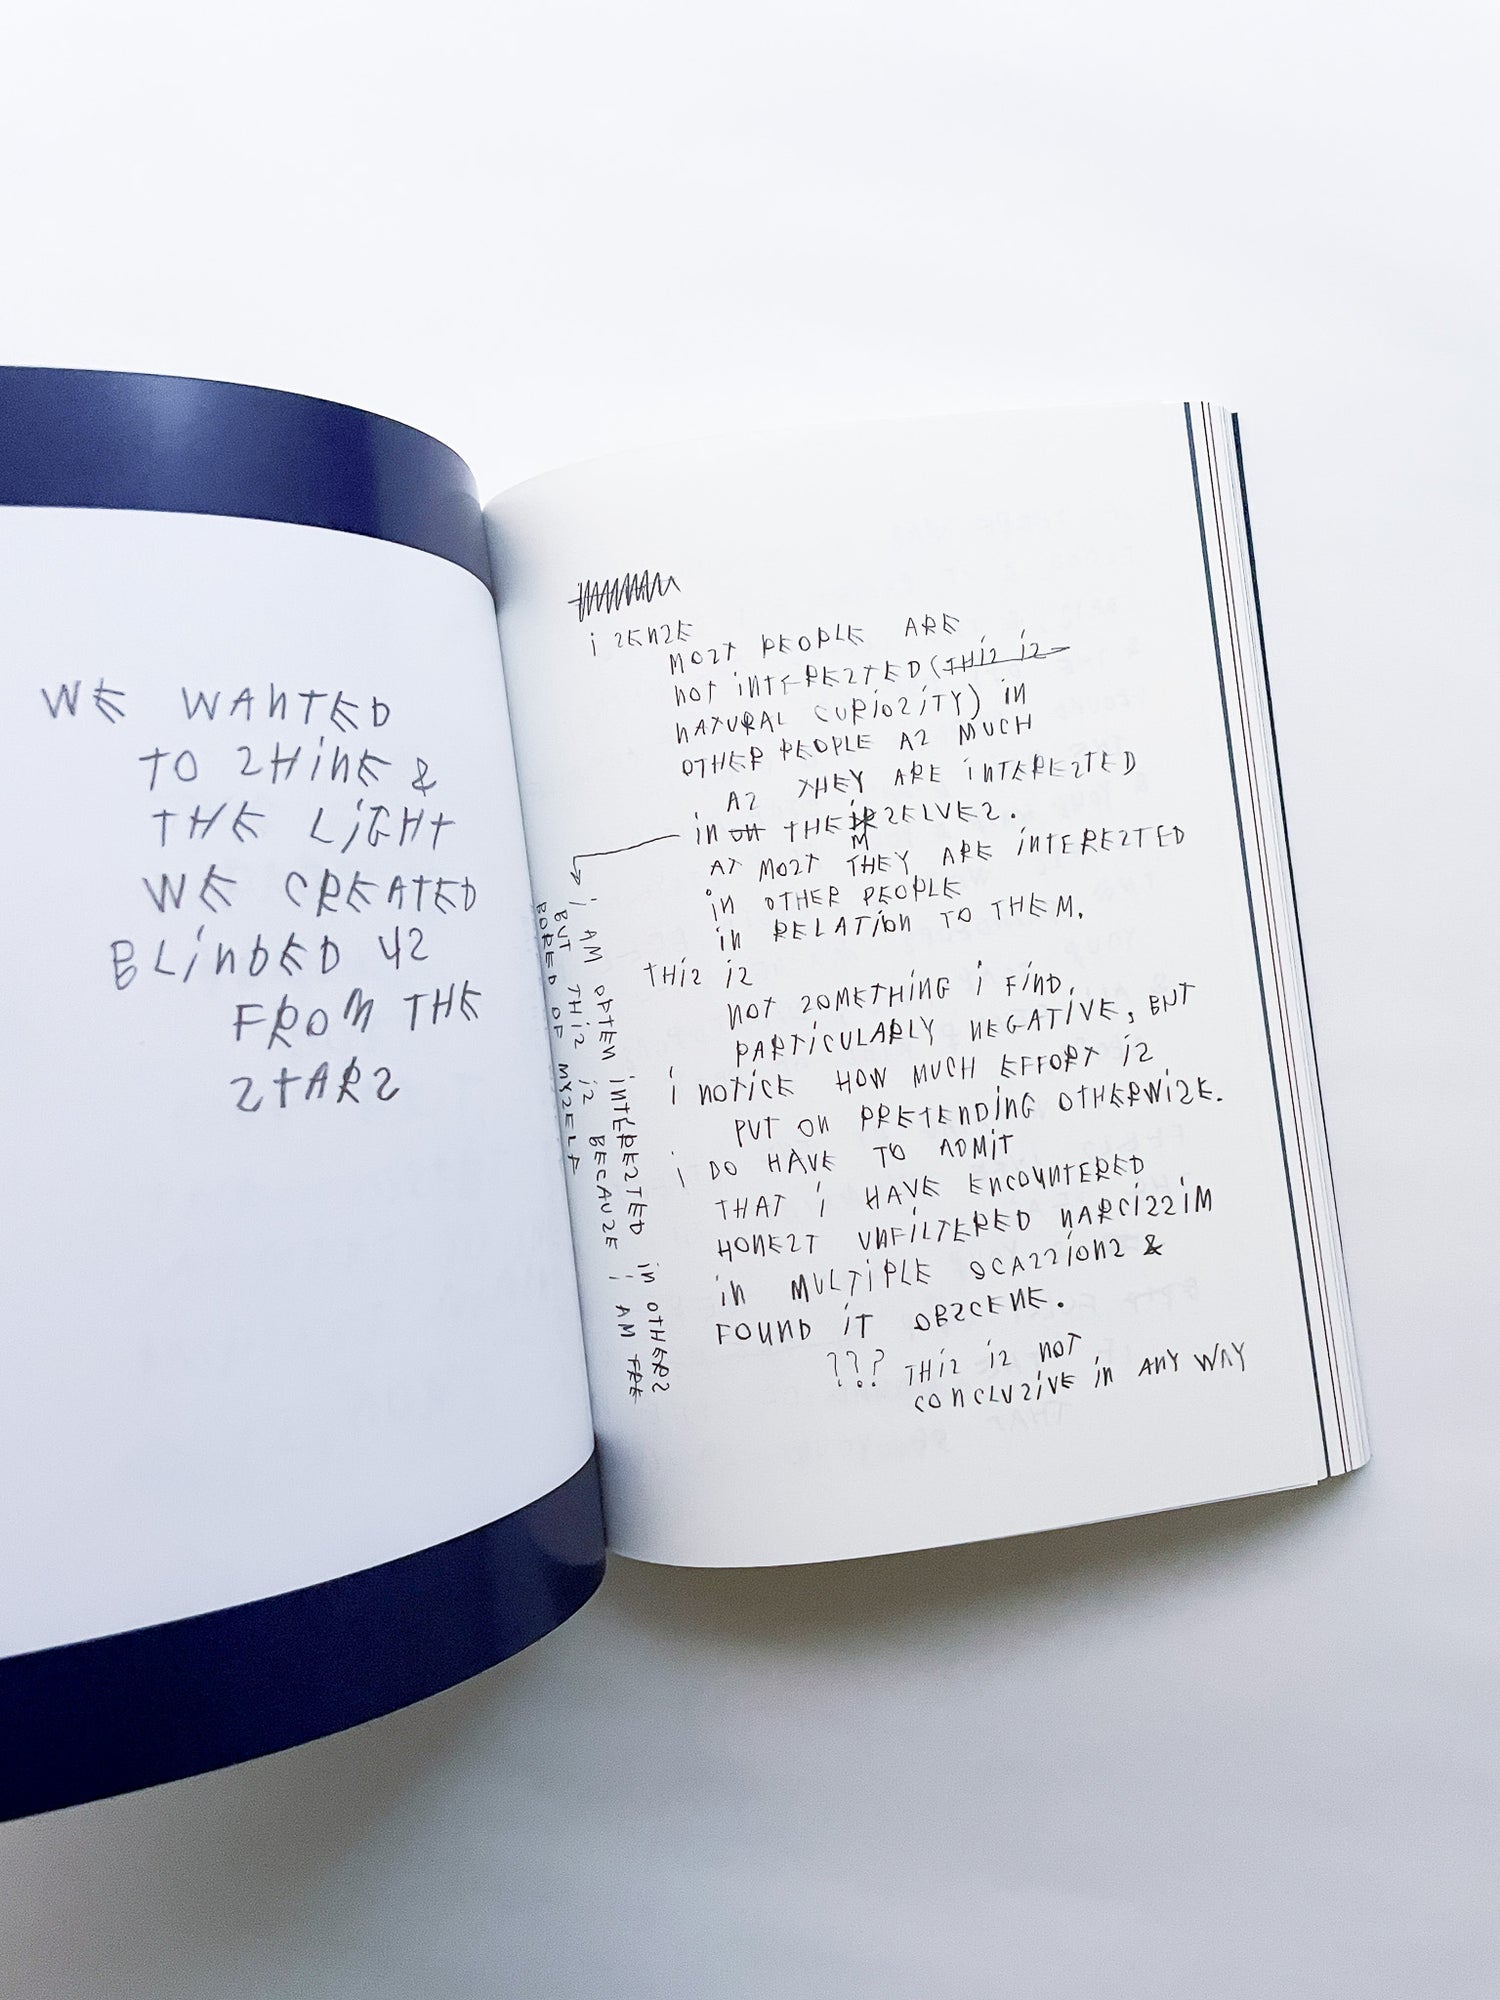 WE WANTED
TO SHiNE &
THE LiGHT
WE CREATED
BLiNDED US
FROM THE
STARS
i SENSE
MOST PEOPLE ARE
NOT iNTERESTED (THiS iS
NATURAL CURiOSiTY) iN
OTHER PEOPLE AS MUCH
AS THEY ARE iNTERESTED
iN ON THEMSELVES.
AT MOST THEY ARE iNTERESTED
iN OTHER PEOPLE
iN RELATiON TO THEM.
THiS iS
NOT SOMETHiNG i FiND,
PARTiCULARLY NEGATiVE, BUT
i NOTiCE HOW MUCH EFFORT iS
PUT ON PRETENDiNG OTHERWiSE.
i DO HAVE TO ADMiT
THAT i HAVE ENCOUNTERED
HONEST UNFiLTERED NARCiSSiM
iN MULTiPLE OCASSiONS &
FOUND iT OBSCENE.
??? THiS iS NOT
CONCLUSiVE iN ANY WAY
i AM OFTEN iNTERESTED iN OTHERS
BUT THiS iS BECAUSE i AM FRE
BORED OF MYSELF